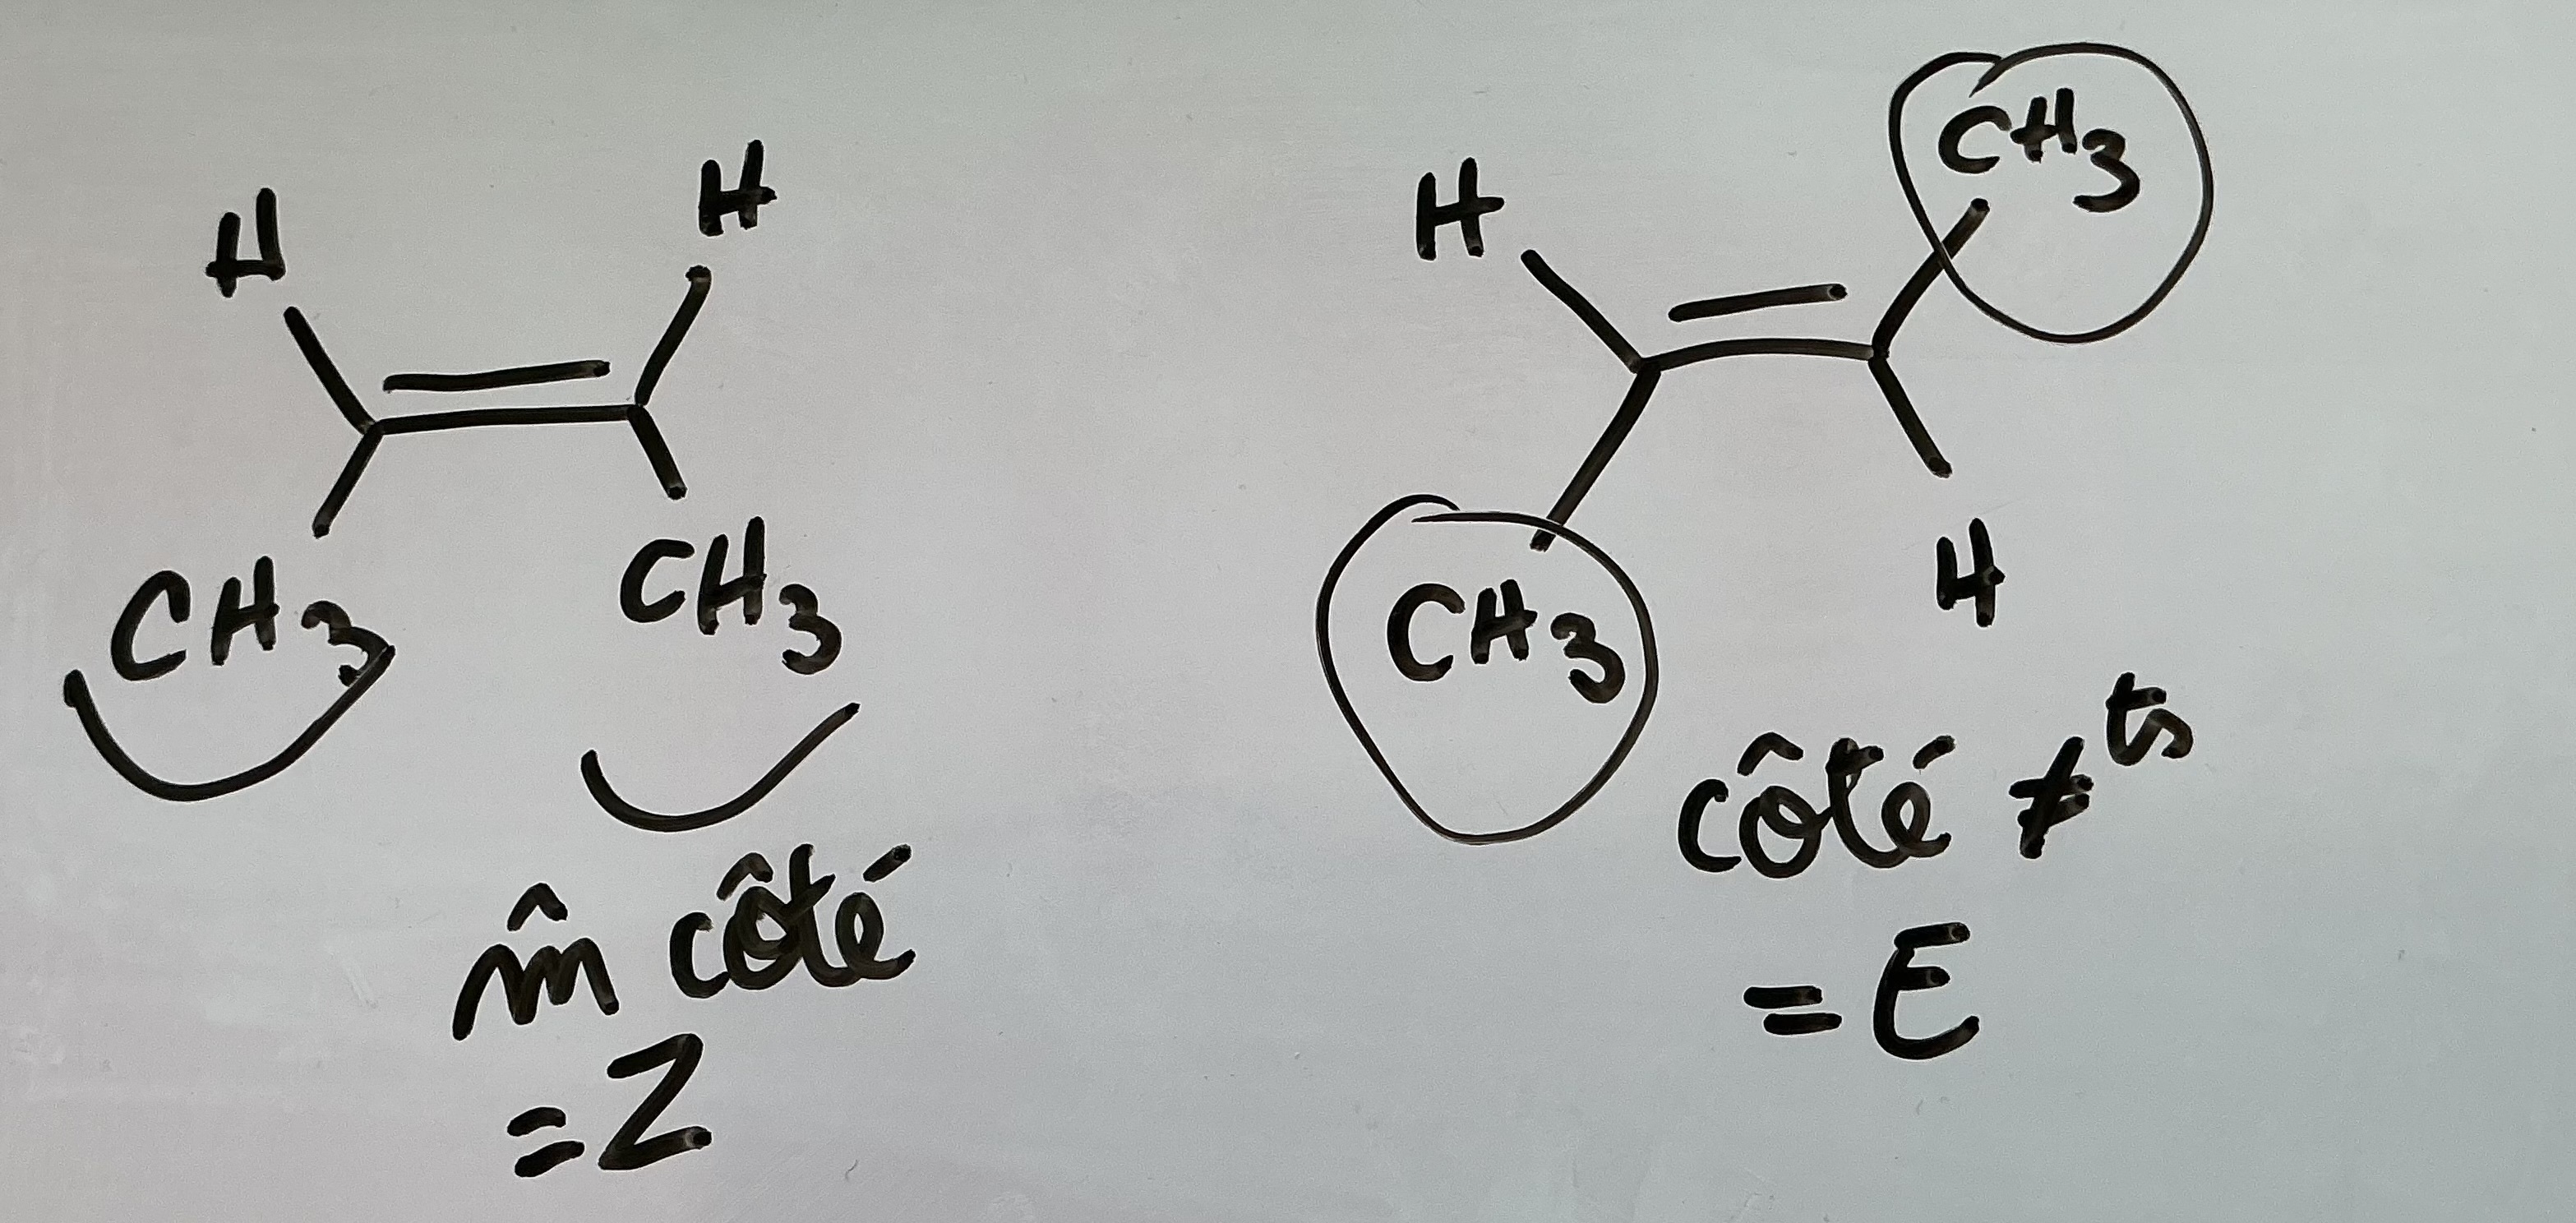 H H
CH3 CH3
m̂ côté
= Z
H CH3
CH3 H
côté ≠ts
= E